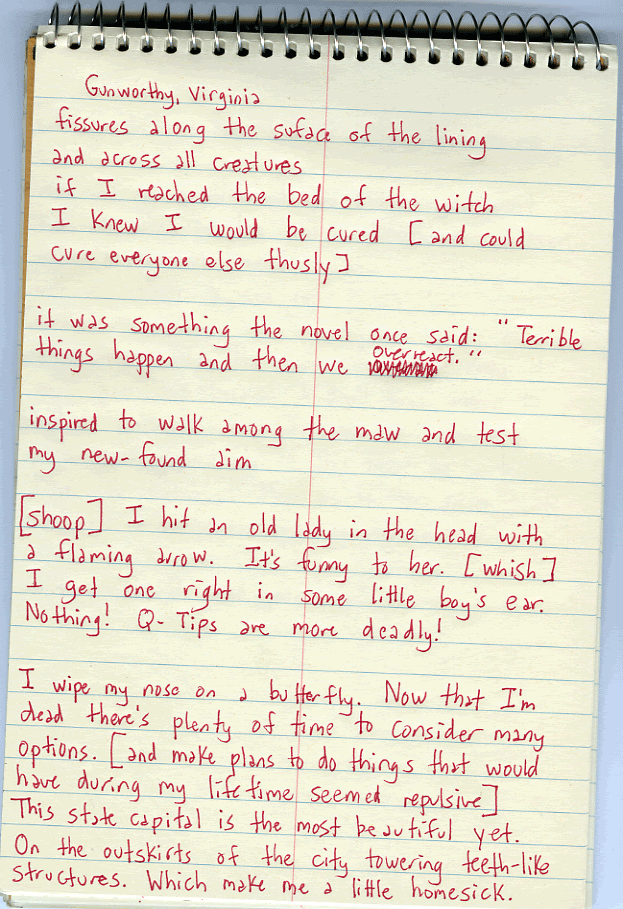 Gunworthy, Virginia
fissures along the suface of the lining
and across all creatures
if I reached the bed of the witch
I knew I would be cured [and could
cure everyone else thusly]
it was something the novel once said: "Terrible
things happen and then we overreact."
inspired to walk among the maw and test
my new-found aim
[shoop] I hit an old lady in the head with
a flaming arrow. It's funny to her. [whish]
I get one right in some little boy's ear.
Nothing! Q-Tips are more deadly!
I wipe my nose on a butterfly. Now that I'm
dead there's plenty of time to consider many
options. [and make plans to do things that would
have during my lifetime seemed repulsive]
This state capital is the most beautiful yet.
On the outskirts of the city towering teeth-like
structures. Which make me a little homesick.